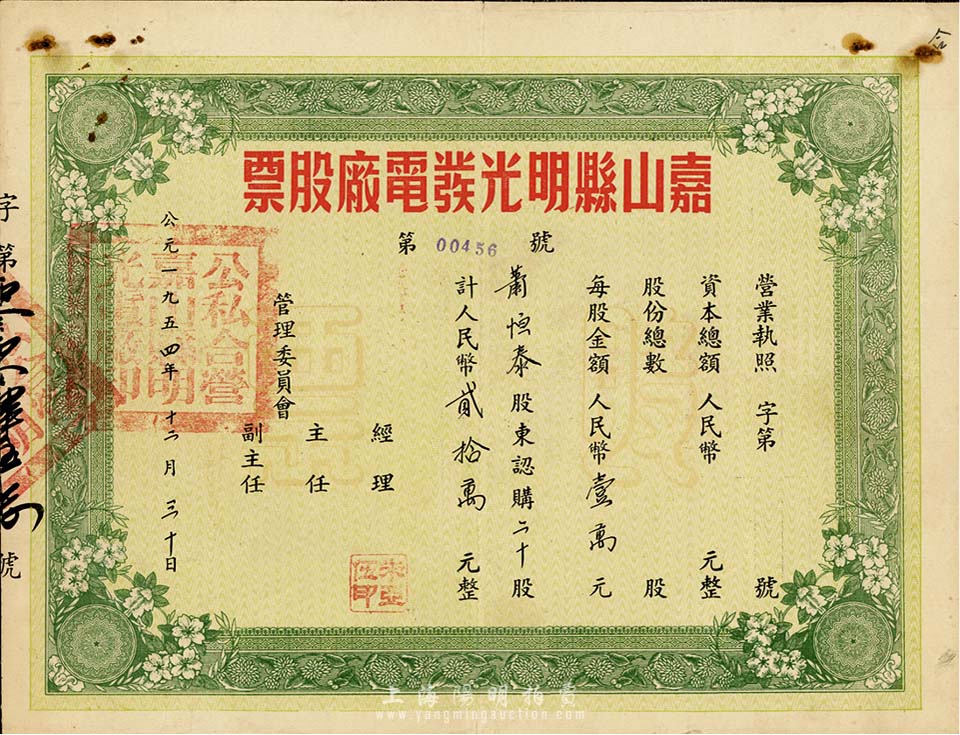 嘉山縣明光发電廠股票
第 00456 號
營業執照 字第 號
資本總額 人民幣 元整
股份總數 股
每股金額 人民幣壹萬元
蕭恒泰 股東認購二十股
計人民幣貳拾萬元整
經理
主任
副主任
管理委員會
公元一九五四年十二月三十日
公私合營嘉山縣明光
字第
號
上海陽明拍賣
www.yangmingauction.com